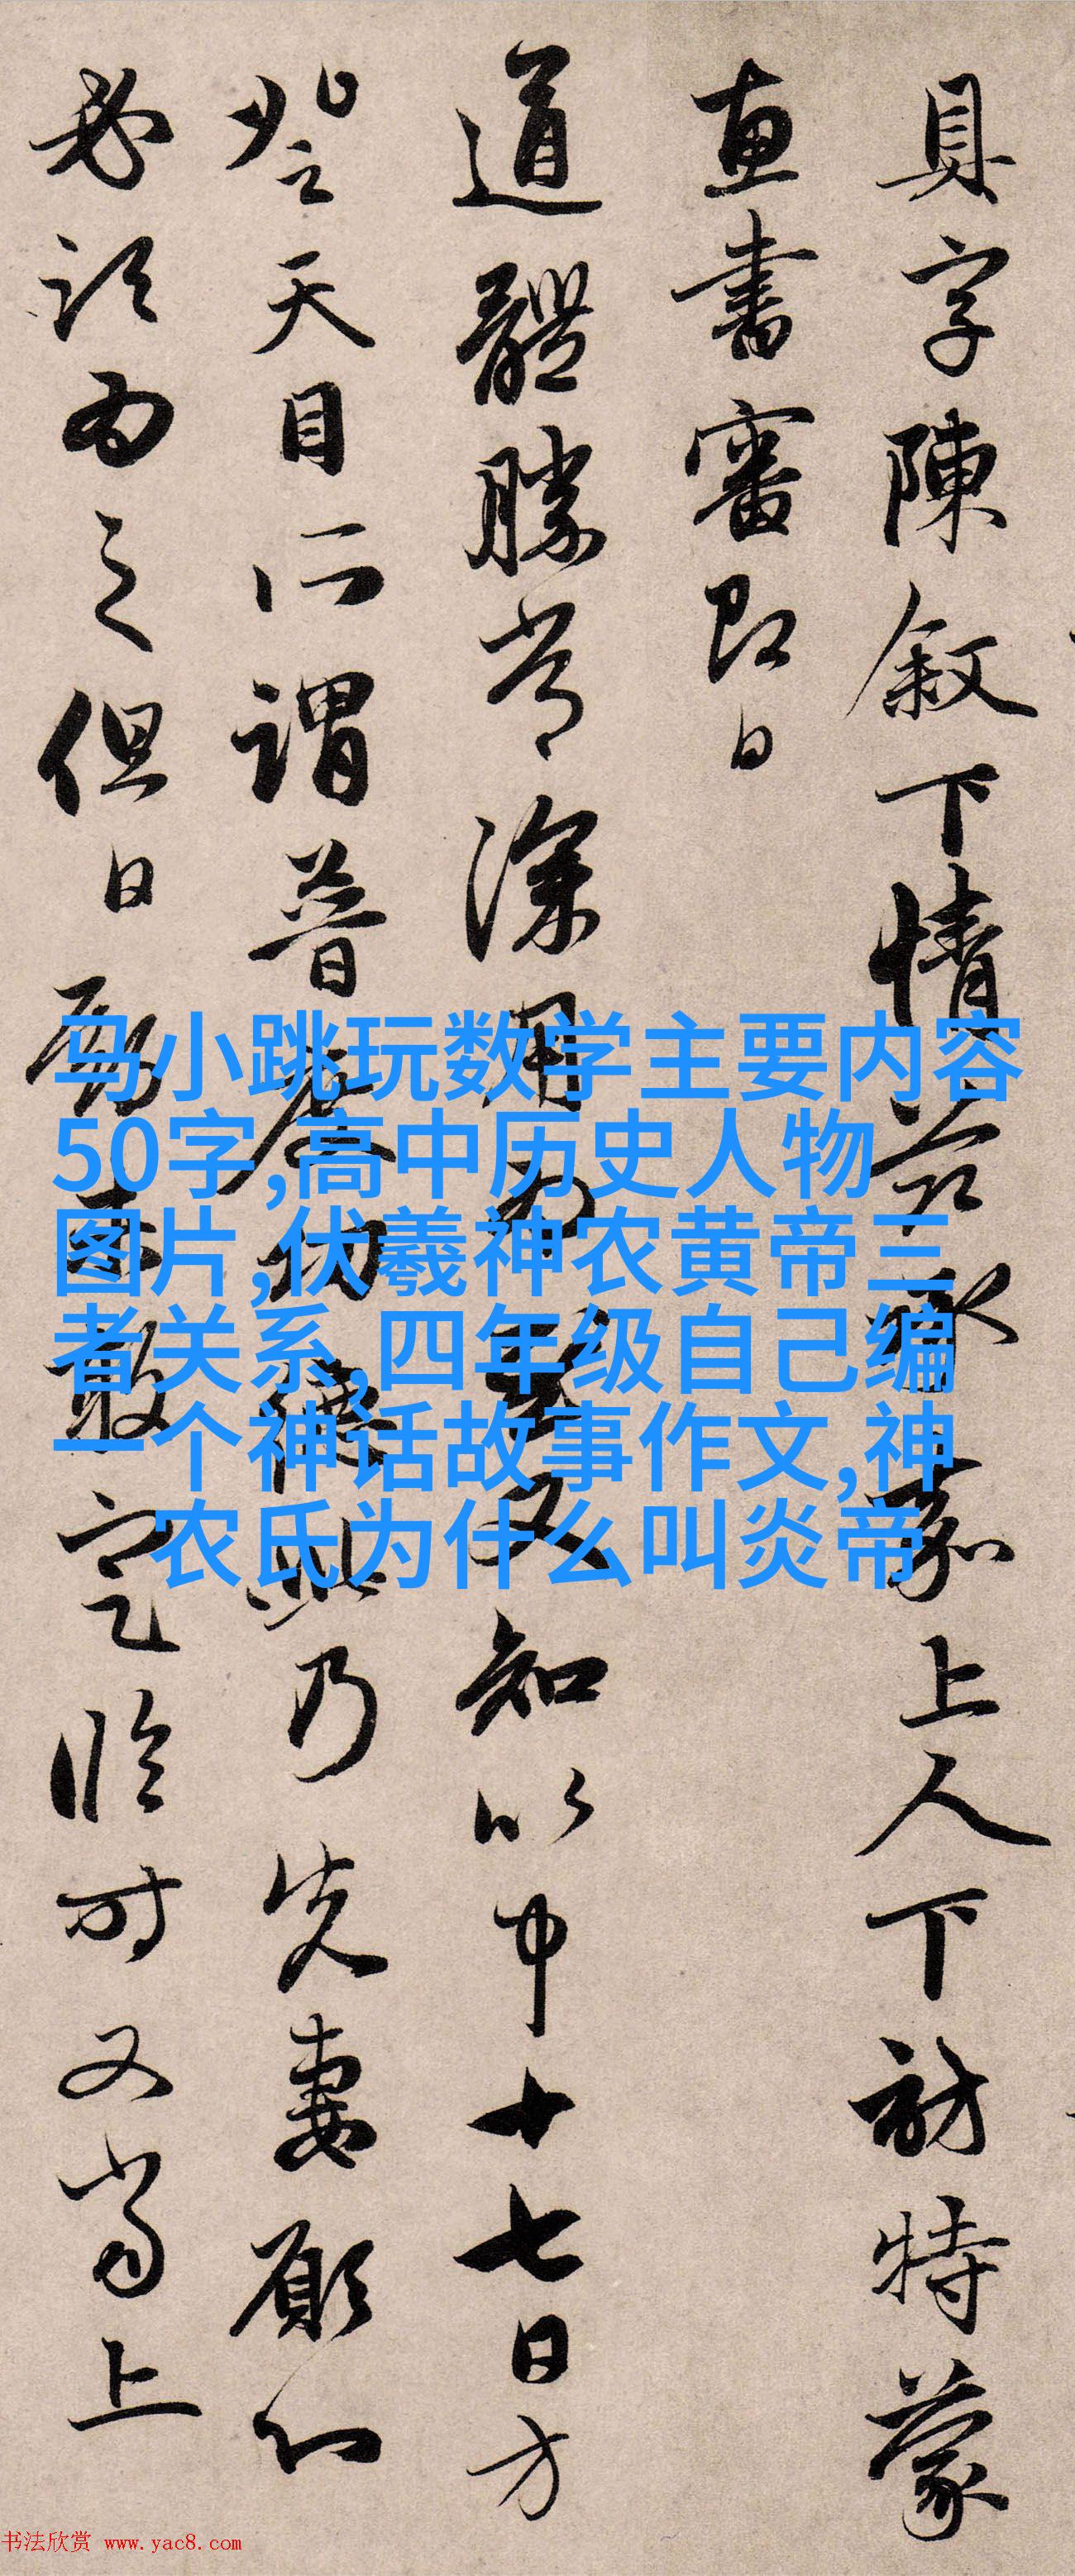 具字陳叙下情
上人下訪特蒙
惠書審即日
道體勝常深用
知以中十七日方
登天目所謂普
乃先妻願心
必須為之但日
定臨時又當上
马小跳玩数学主要内容
50字,高中历史人物
图片,伏羲神农黄帝三
者关系,四年级自己编
一个神话故事作文,神
农氏为什么叫炎帝
书法欣赏 www.yac8.com